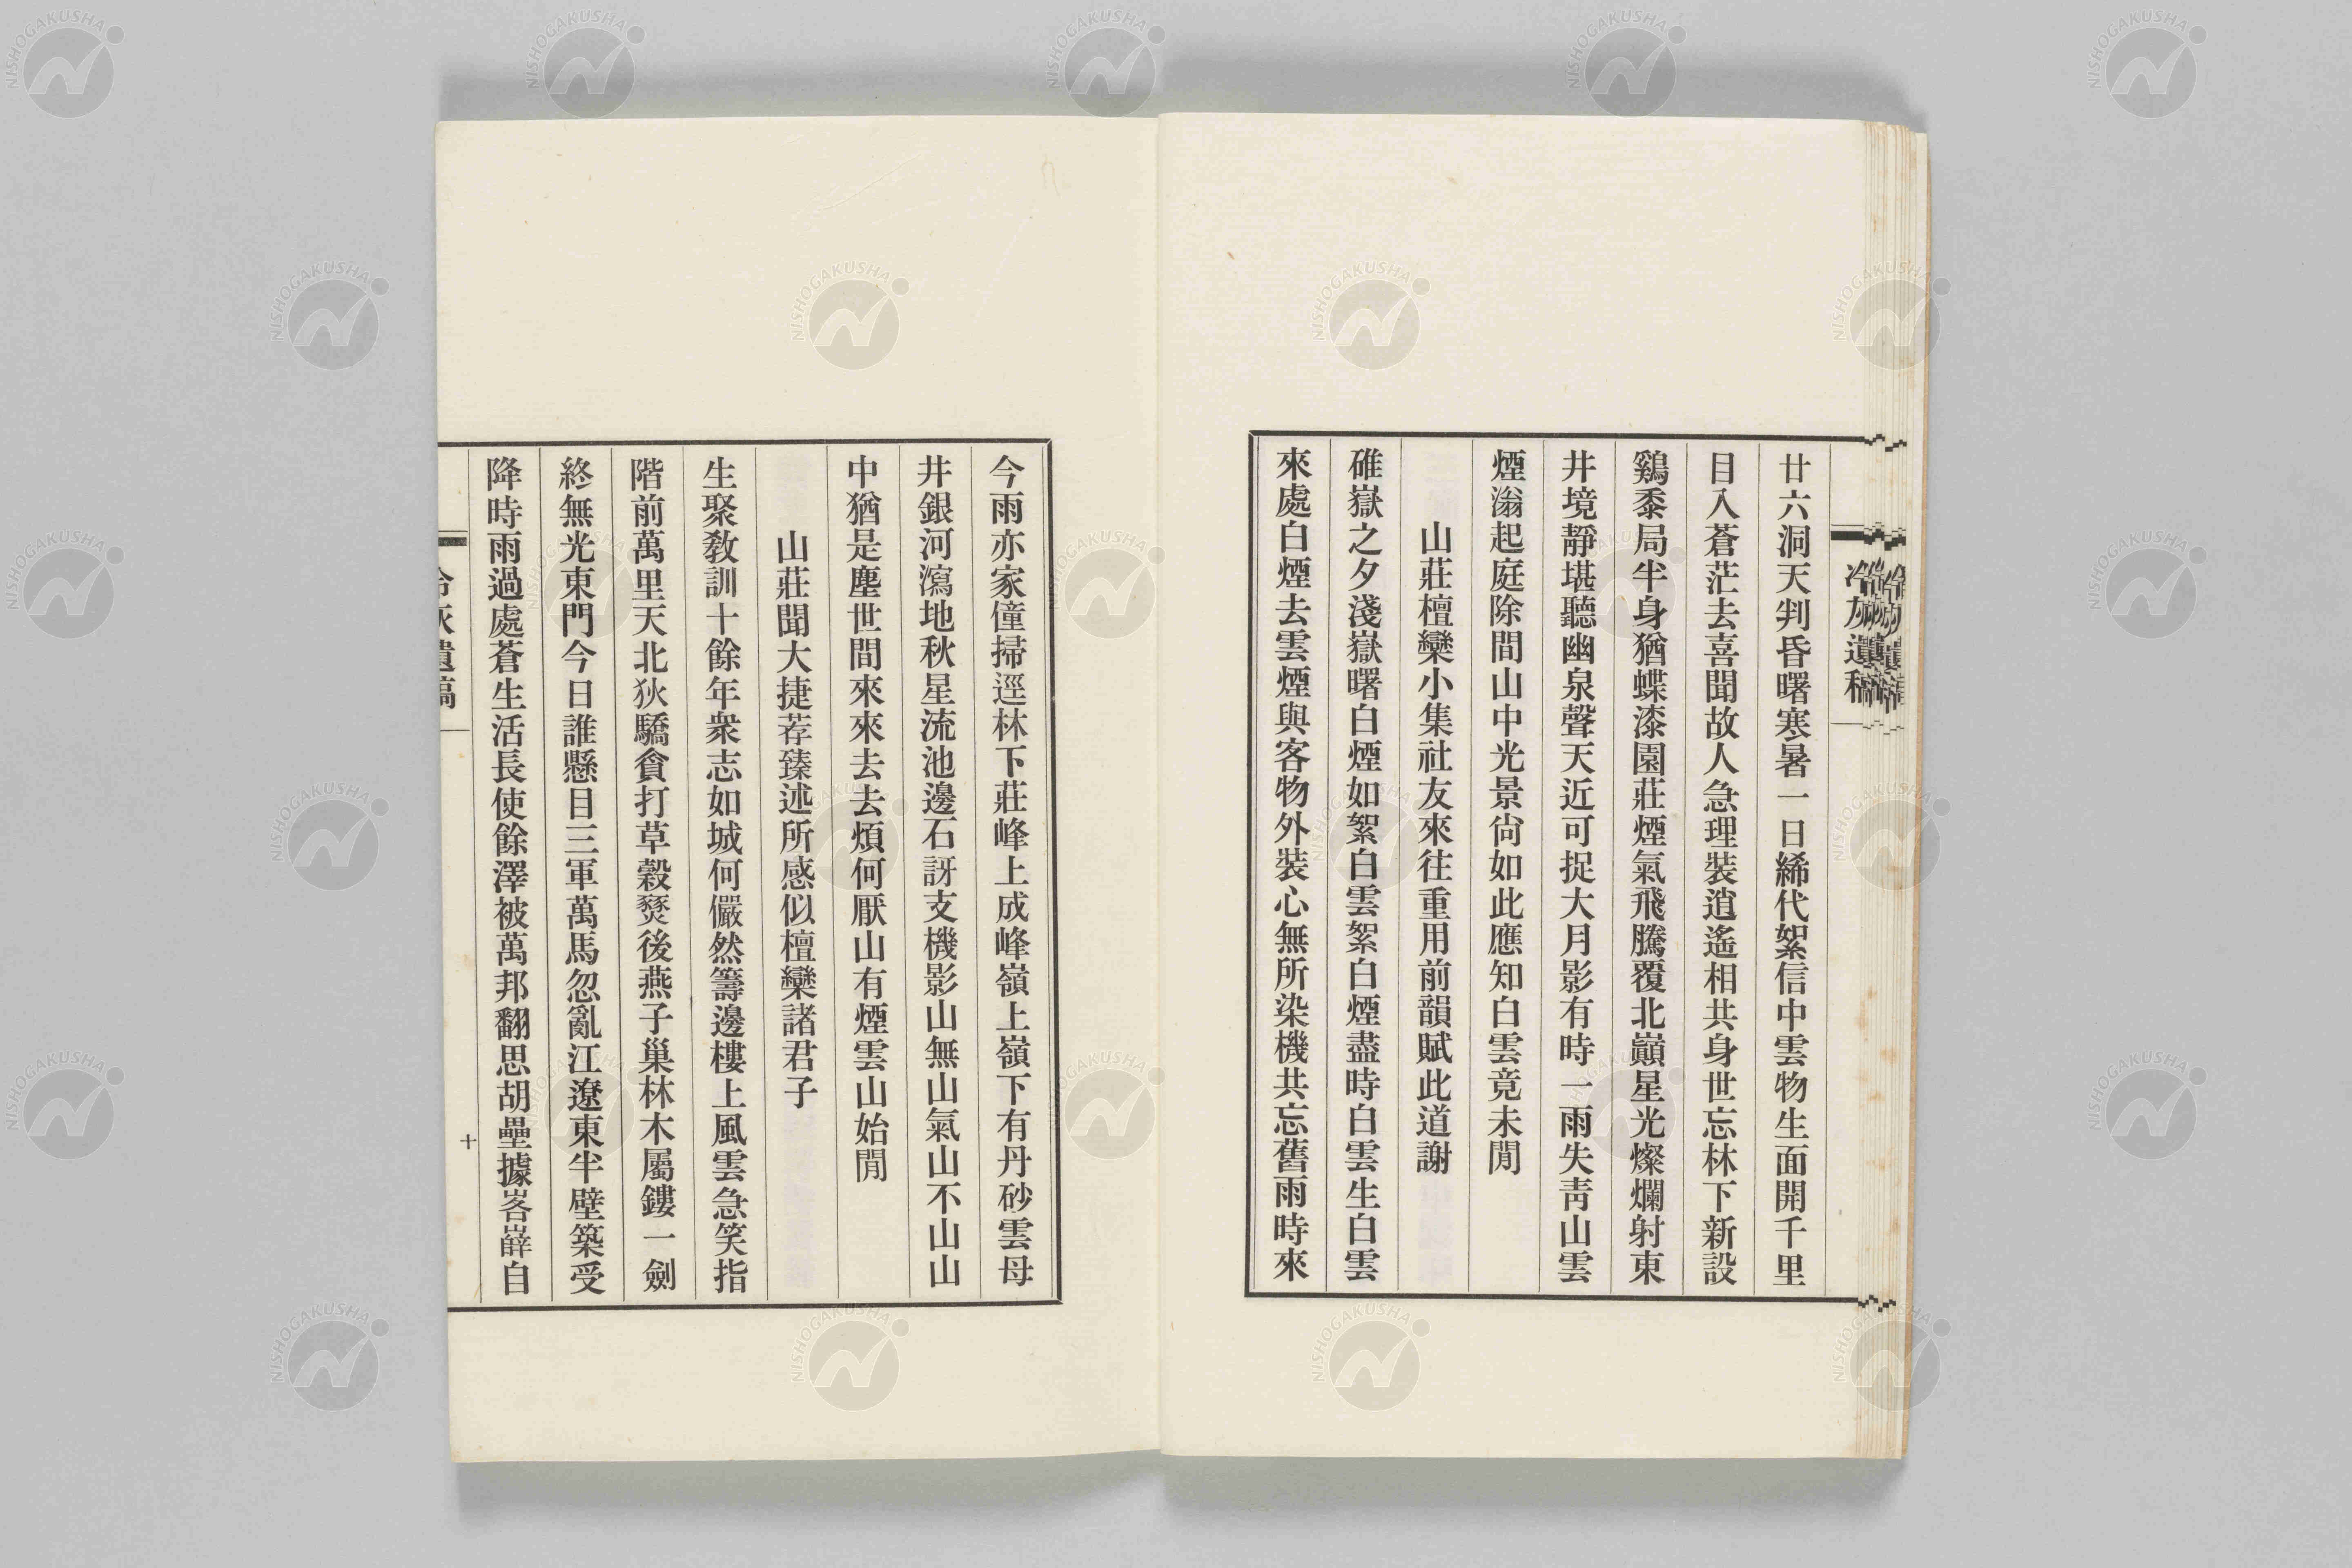 冷灰遺稿
廿六洞天判昏曙寒暑一日絺代絮信中雲物生面開千里
目入蒼茫去喜聞故人急理裝逍遙相共身世忘林下新設
鷄黍局半身猶蝶漆園莊煙氣飛騰覆北巔星光燦爛射東
井境靜堪聽幽泉聲天近可捉大月影有時一雨失靑山雲
煙滃起庭除間山中光景尙如此應知白雲竟未閒
山莊檀欒小集社友來往重用前韻賦此道謝
碓嶽之夕淺嶽曙白煙如絮白雲絮白煙盡時白雲生白雲
來處白煙去雲煙與客物外裝心無所染機共忘舊雨時來
今雨亦家僮掃逕林下莊峰上成峰嶺上嶺下有丹砂雲母
井銀河瀉地秋星流池邊石訝支機影山無山氣山不山山
中猶是塵世間來來去去煩何厭山有煙雲山始閒
山莊聞大捷荐臻述所感似檀欒諸君子
生聚敎訓十餘年衆志如城何儼然籌邊樓上風雲急笑指
階前萬里天北狄驕貪打草穀燹後燕子巢林木屬鏤一劍
終無光東門今日誰懸目三軍萬馬忽亂江遼東半壁築受
降時雨過處蒼生活長使餘澤被萬邦翻思胡壘據峉嶭自
冷灰遺稿
十
NISHOGAKUSHA